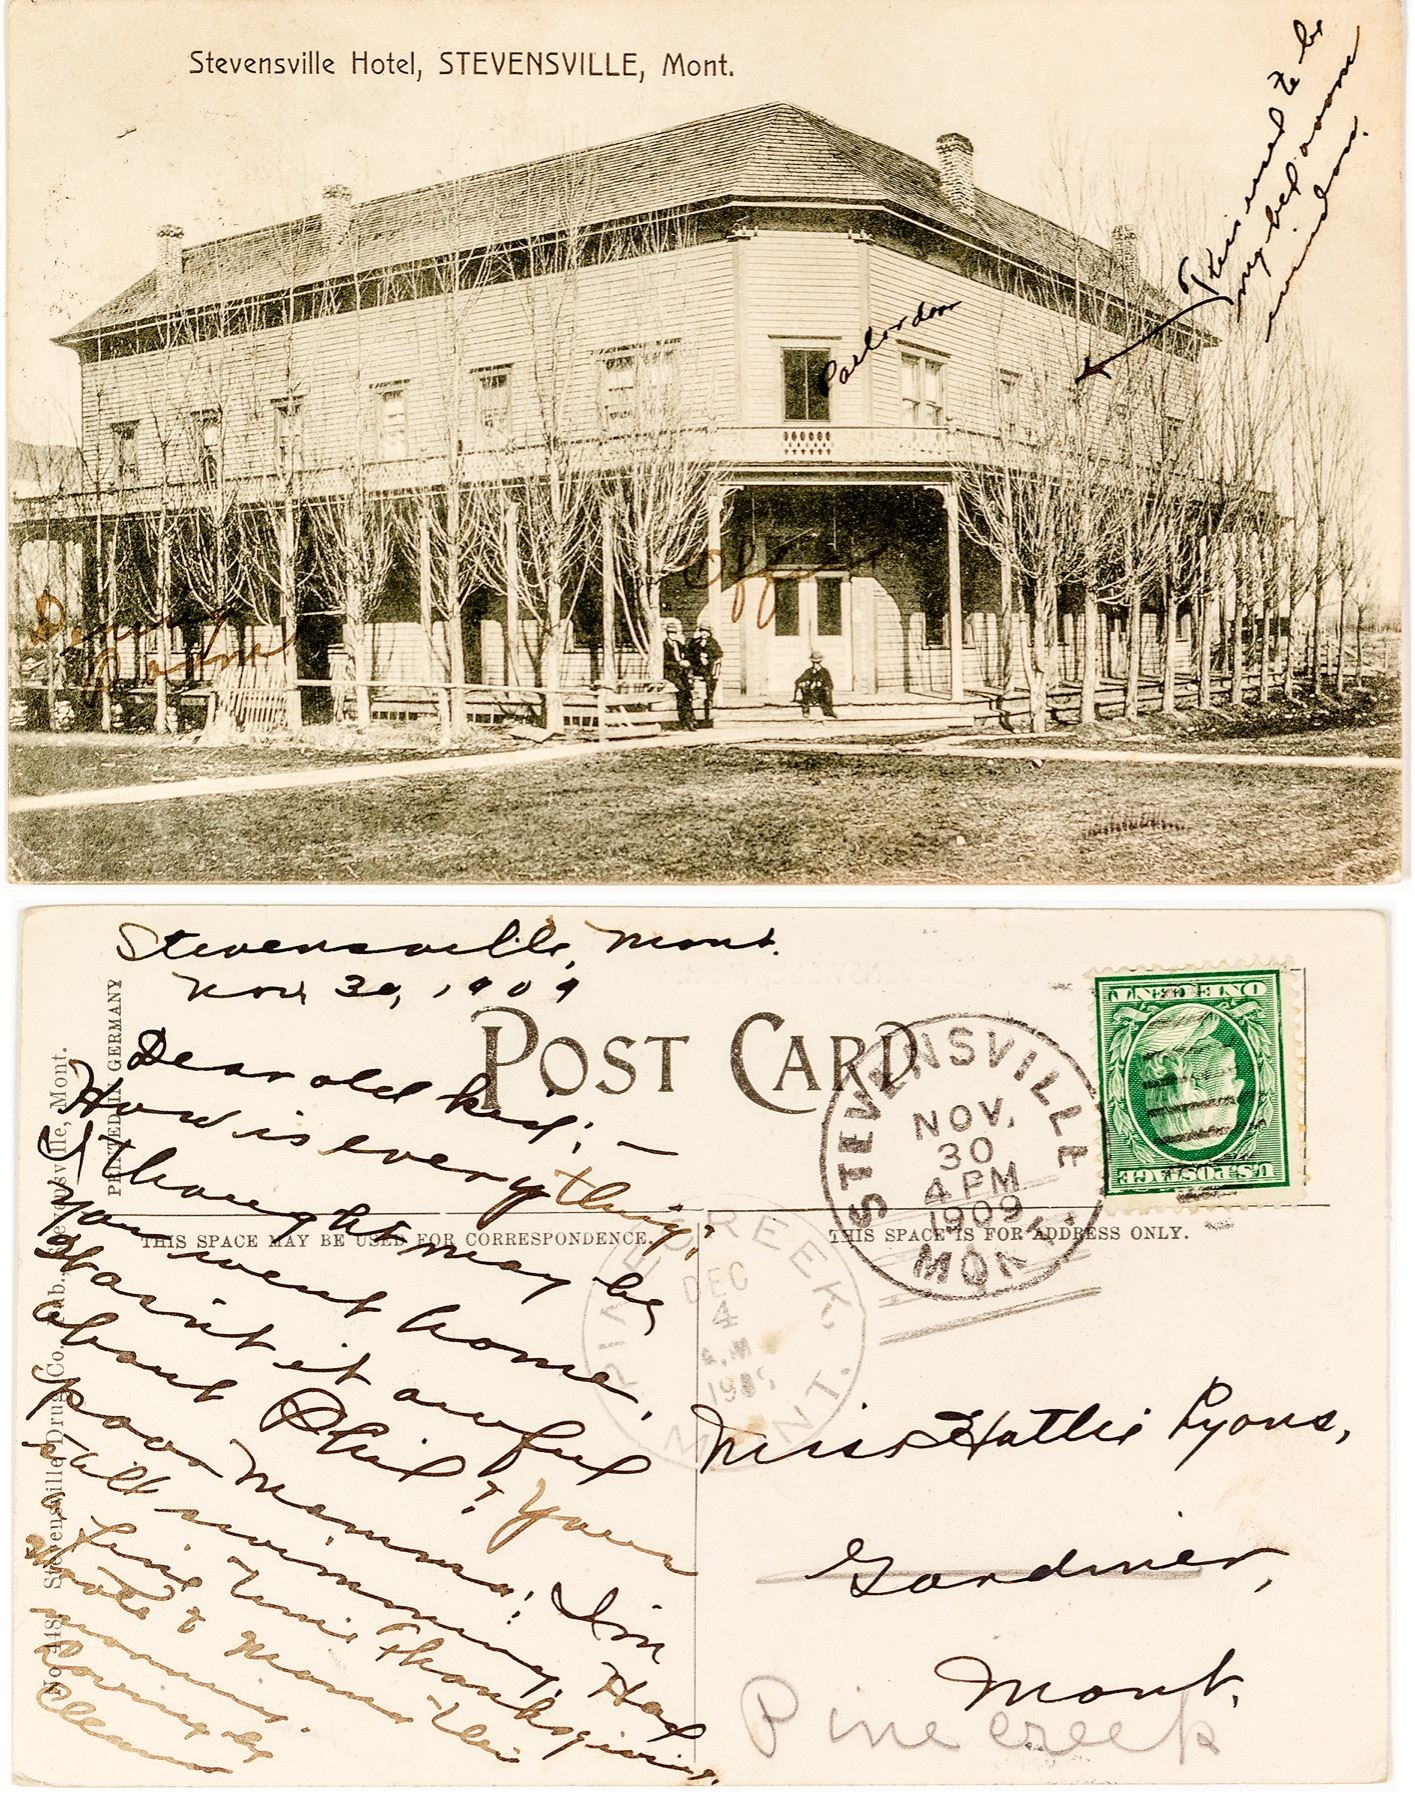 Stevensville Hotel, STEVENSVILLE, Mont.
This used to be
my bed room
window.
Parlor door
Office
Dining
Room
Stevensville, Mont.
Nov 30, 1909
POST CARD
PRINTED IN GERMANY
No. 418. Stevensville Drug Co., Pub., Stevensville, Mont.
THIS SPACE MAY BE USED FOR CORRESPONDENCE.
THIS SPACE IS FOR ADDRESS ONLY.
Dear old kid; —
How is everything;
I thought may be
you went home.
Hasn't it awful
about Phil? Your
poor Mamma! I'm
still swimming. Had
a fine time Thanksgiving.
Wrote to Mamma this
morning.
Lovingly
STEVENSVILLE
NOV.
30
4 PM
1909
MONT.
PINE CREEK,
DEC
4
A.M.
1909
MONT.
ONE CENT
U.S. POSTAGE
Miss Hattie Lyons,
Gardiner,
Mont.
Pine creek